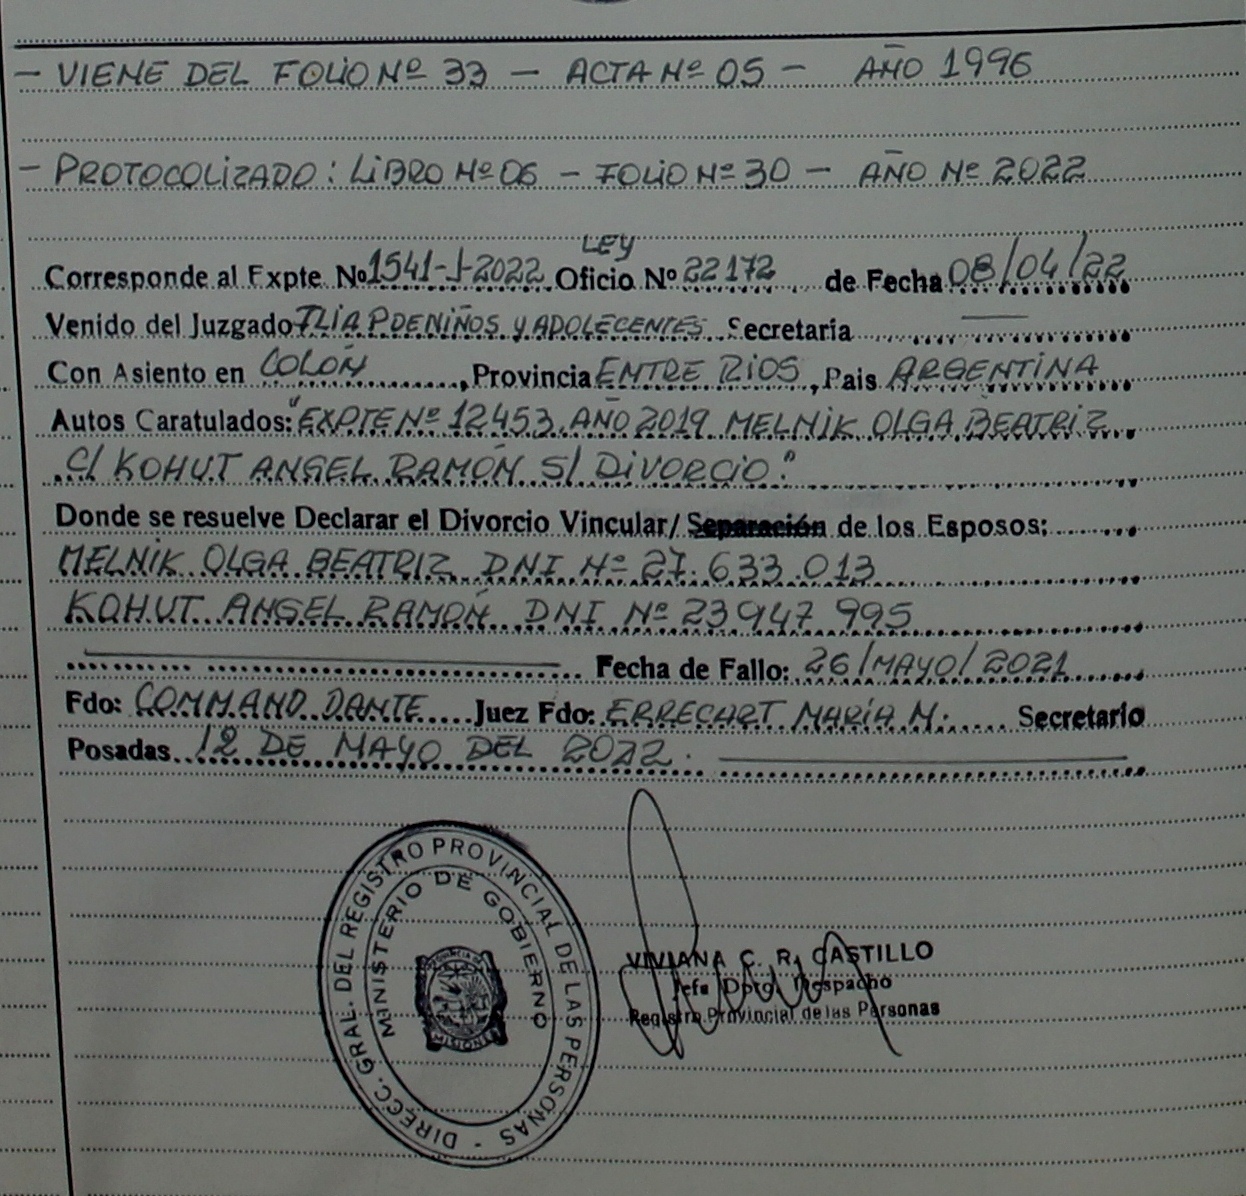 - VIENE DEL FOLIO Nº 33 - ACTA Nº 05 - AÑO 1996
- PROTOCOLIZADO: LIBRO Nº 06 - FOLIO Nº 30 - AÑO Nº 2022
LEY
Corresponde al Expte. Nº 1541-J-2022 Oficio Nº 22172 de Fecha 08/04/22
Venido del Juzgado FLIA P. DE NIÑOS Y ADOLECENTES Secretaria
Con Asiento en COLÓN, Provincia ENTRE RIOS, Pais ARGENTINA
Autos Caratulados: "EXPTE Nº 12453 AÑO 2019 MELNIK OLGA BEATRIZ
C/ KOHUT ANGEL RAMÓN S/ DIVORCIO."
Donde se resuelve Declarar el Divorcio Vincular/ Separación de los Esposos:
MELNIK OLGA BEATRIZ DNI Nº 27.633.013
KOHUT ANGEL RAMÓN DNI Nº 23947995
Fecha de Fallo: 26/MAYO/2021
Fdo: COMMAND DANTE Juez Fdo: ERRECART MARÍA M. Secretario
Posadas 12 DE MAYO DEL 2022.
DIRECC. GRAL. DEL REGISTRO PROVINCIAL DE LAS PERSONAS -
MINISTERIO DE GOBIERNO
VIVIANA C. R. CASTILLO
Jefa Dpto. Despacho
Registro Provincial de las Personas